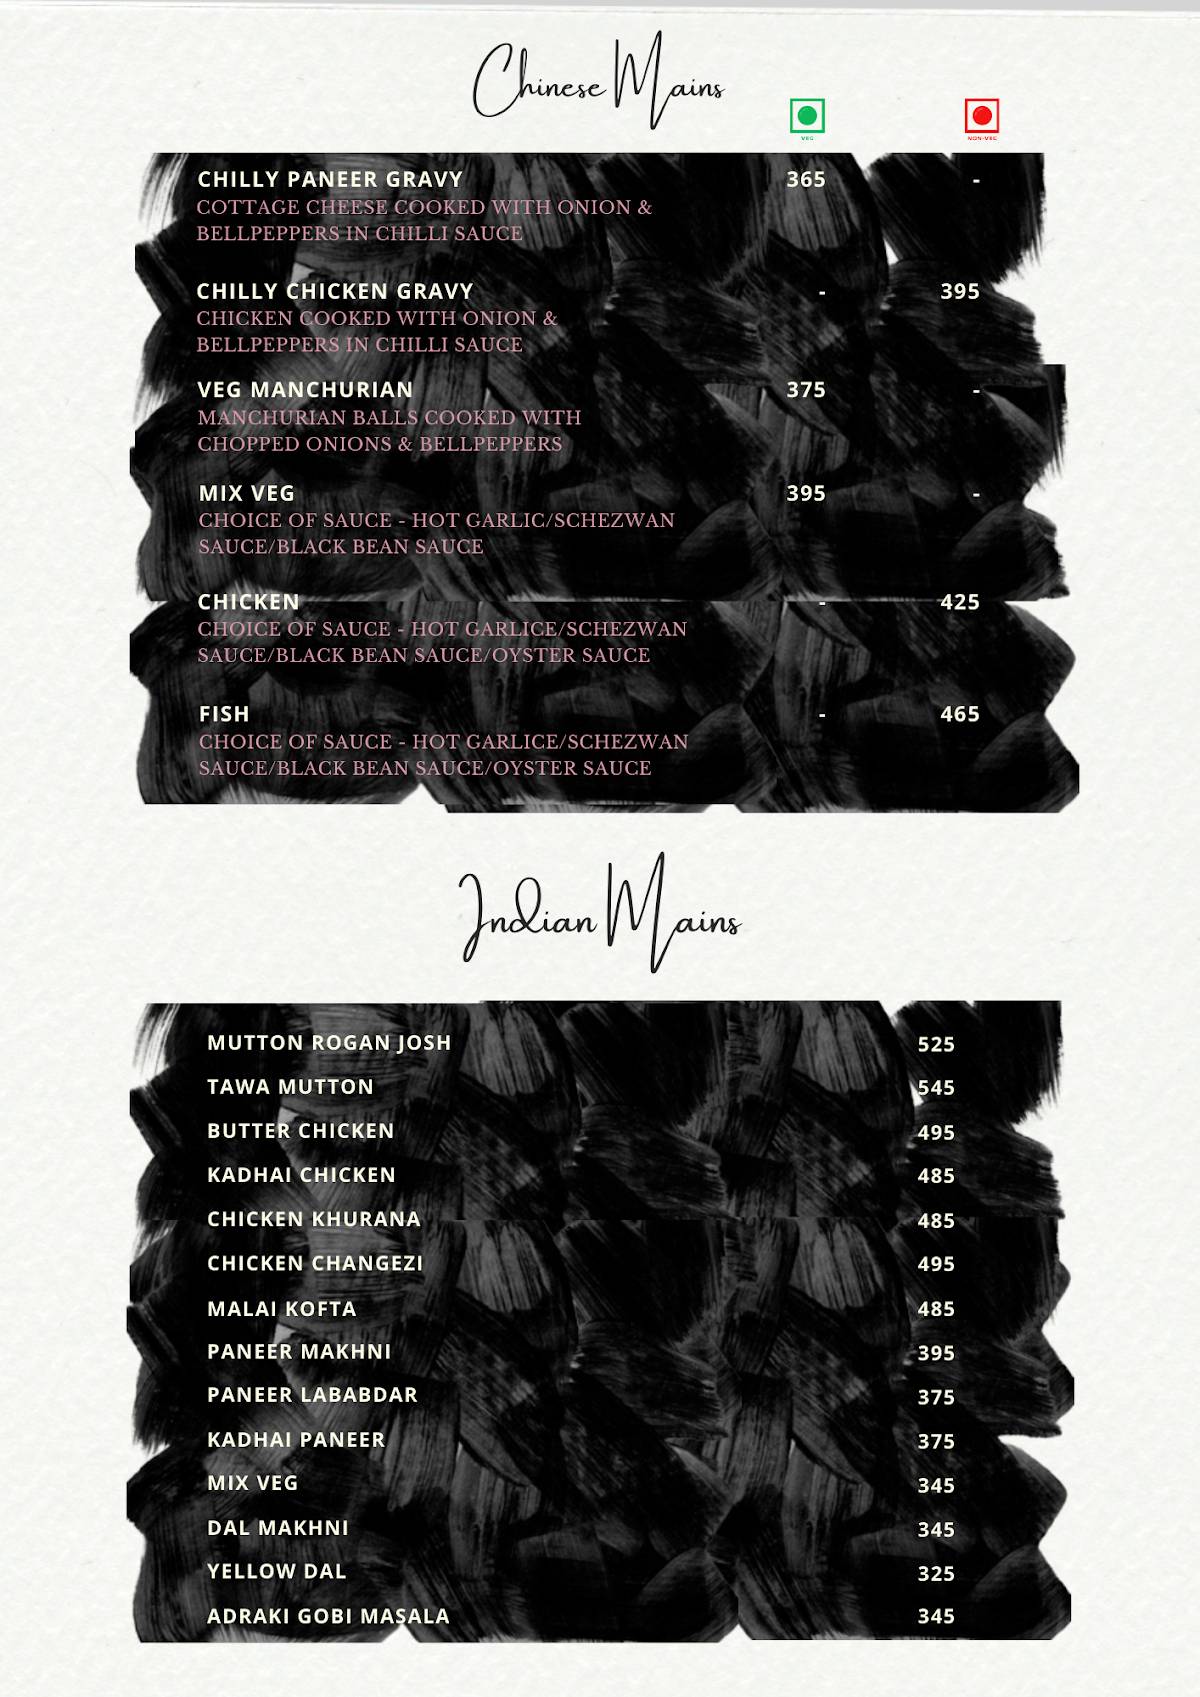 Chinese Mains
VEG NON-VEG
CHILLY PANEER GRAVY 365 -
COTTAGE CHEESE COOKED WITH ONION &
BELLPEPPERS IN CHILLI SAUCE
CHILLY CHICKEN GRAVY - 395
CHICKEN COOKED WITH ONION &
BELLPEPPERS IN CHILLI SAUCE
VEG MANCHURIAN 375 -
MANCHURIAN BALLS COOKED WITH
CHOPPED ONIONS & BELLPEPPERS
MIX VEG 395 -
CHOICE OF SAUCE - HOT GARLIC/SCHEZWAN
SAUCE/BLACK BEAN SAUCE
CHICKEN - 425
CHOICE OF SAUCE - HOT GARLICE/SCHEZWAN
SAUCE/BLACK BEAN SAUCE/OYSTER SAUCE
FISH - 465
CHOICE OF SAUCE - HOT GARLICE/SCHEZWAN
SAUCE/BLACK BEAN SAUCE/OYSTER SAUCE
Indian Mains
MUTTON ROGAN JOSH 525
TAWA MUTTON 545
BUTTER CHICKEN 495
KADHAI CHICKEN 485
CHICKEN KHURANA 485
CHICKEN CHANGEZI 495
MALAI KOFTA 485
PANEER MAKHNI 395
PANEER LABABDAR 375
KADHAI PANEER 375
MIX VEG 345
DAL MAKHNI 345
YELLOW DAL 325
ADRAKI GOBI MASALA 345